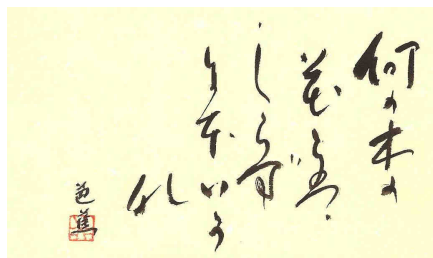 何の木の
花とは
しらず
にほいか
な
芭蕉